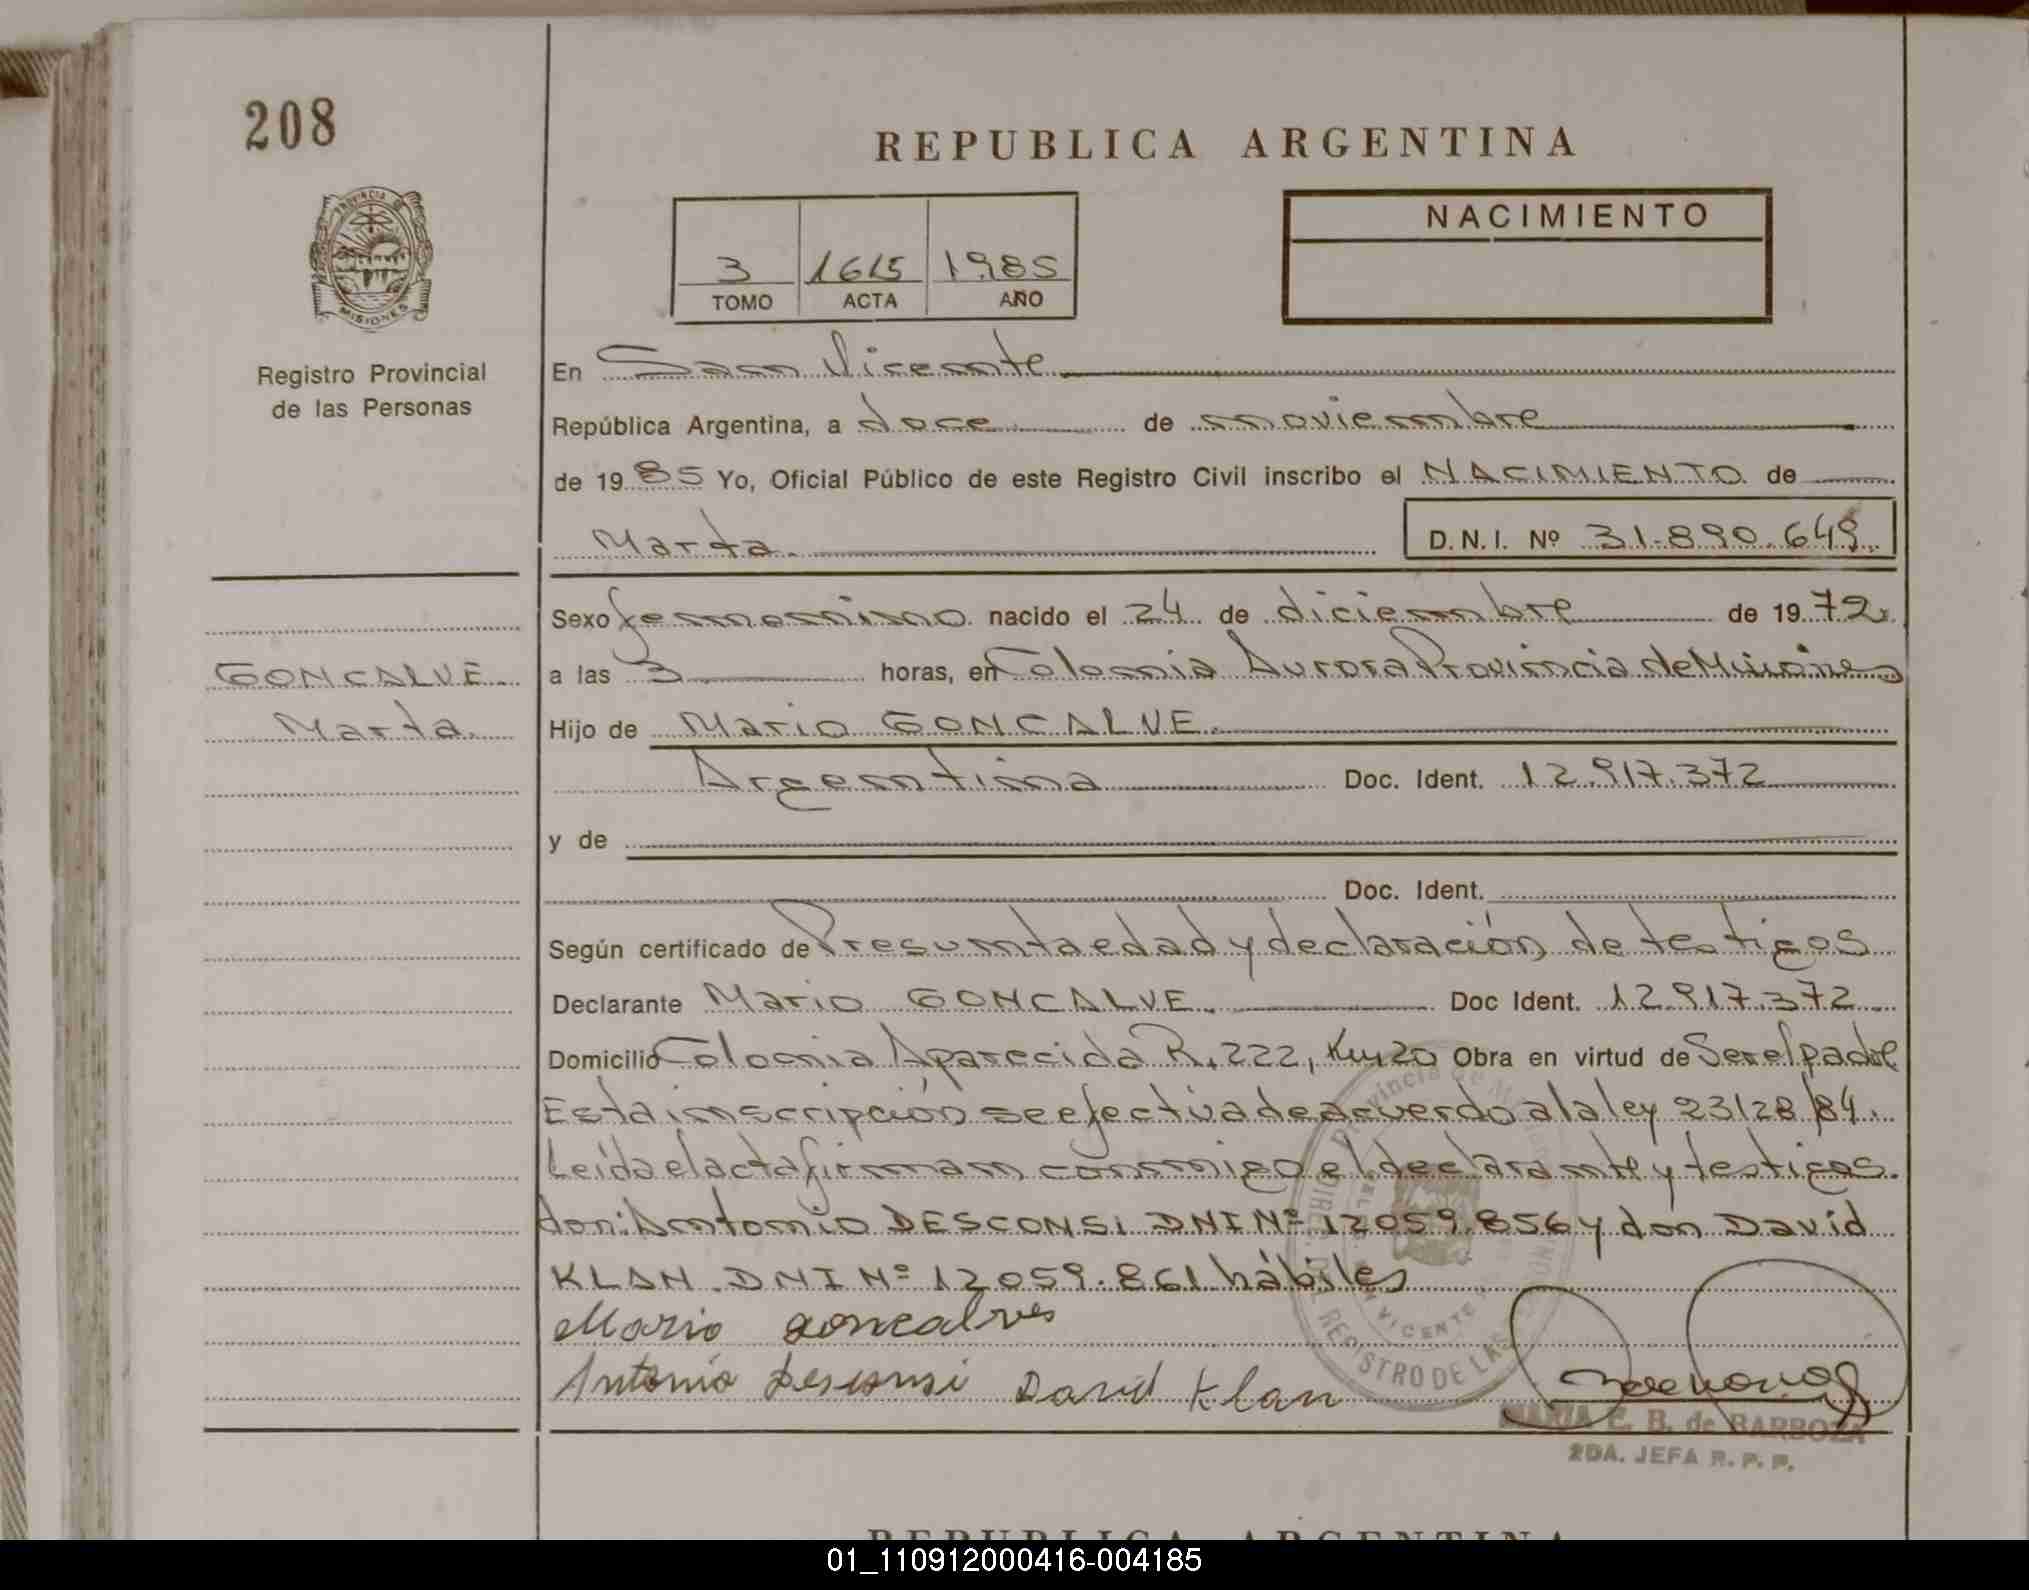 208
REPUBLICA ARGENTINA
PROVINCIA DE
MISIONES
Registro Provincial
de las Personas
NACIMIENTO
3 1615 1985
TOMO ACTA AÑO
En San Vicente
República Argentina, a doce de noviembre
de 1985 Yo, Oficial Público de este Registro Civil inscribo el NACIMIENTO de
Marta. D.N.I. Nº 31.890.649.
Sexo femenino nacido el 24 de diciembre de 1972
GONCALVE
Marta.
a las 3 horas, en Colonia Aurora Provincia de Misiones
Hijo de Mario GONCALVE.
Argentina Doc. Ident. 12.917.372
y de
Doc. Ident.
Según certificado de Presunta edad y declaración de testigos
Declarante Mario GONCALVE. Doc Ident. 12.917.372
Domicilio Colonia Aparecida R. 222, Km 20 Obra en virtud de Ser el padre
Esta inscripción se efectúa de acuerdo a la ley 23128/84.
Leída el acta firman conmigo el declarante y testigos.
don: Antonio DESCONSI DNI Nº 12059.856 y don David
KLAN. DNI Nº 12059.861 hábiles
Mario goncalves
Antonio Desconsi David Klan
MARIA E. B. de BARBOZA
2DA. JEFA R. P. P.
REPUBLICA ARGENTINA
01_110912000416-004185